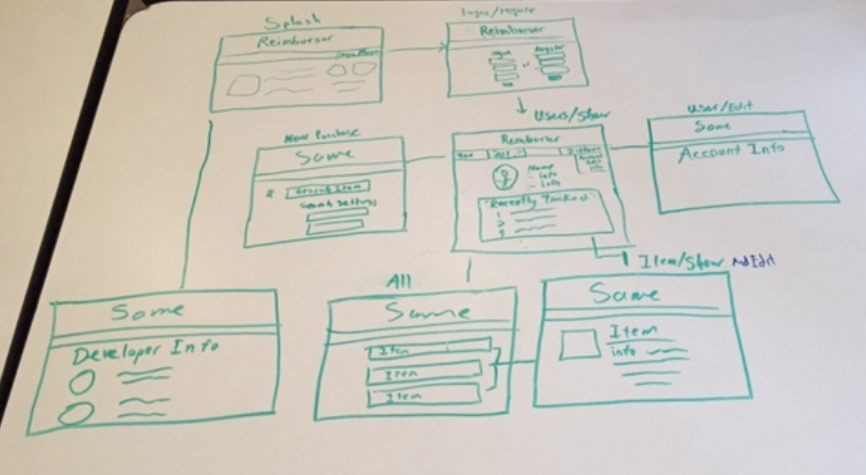 Splash
Reimburser
login/register
Reimburser
Login
or
Register
Users/Show
Reimburser
New
All
Name
- info
- info
Recently Tracked
1
2
3
User/Edit
Same
Account Info
New Purchase
Same
Search Item
Search Settings
Item/Show And Edit
Same
Item
info
All
Same
Item
Item
Item
Same
Developer Info